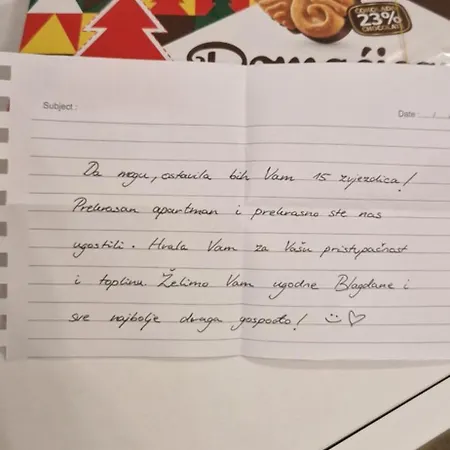 ČOKOLADA
23%
CHOCOLATE
Domaćica
Subject :
Date : / /
Da mogu, ostavila bih Vam 15 zvjezdica!
Prekrasan apartman i prekrasno ste nas
ugostili. Hvala Vam za Vašu pristupačnost
i toplinu. Želimo Vam ugodne Blagdane i
sve najbolje draga gospođo! :) ♡